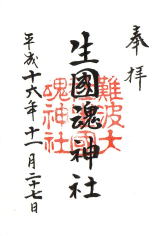 奉拝
生國魂神社
難波大
魂神社
平成十六年十一月二十七日